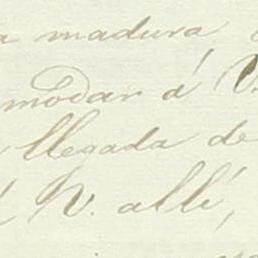 a madura
modar á V.
llegada de
V. allí,